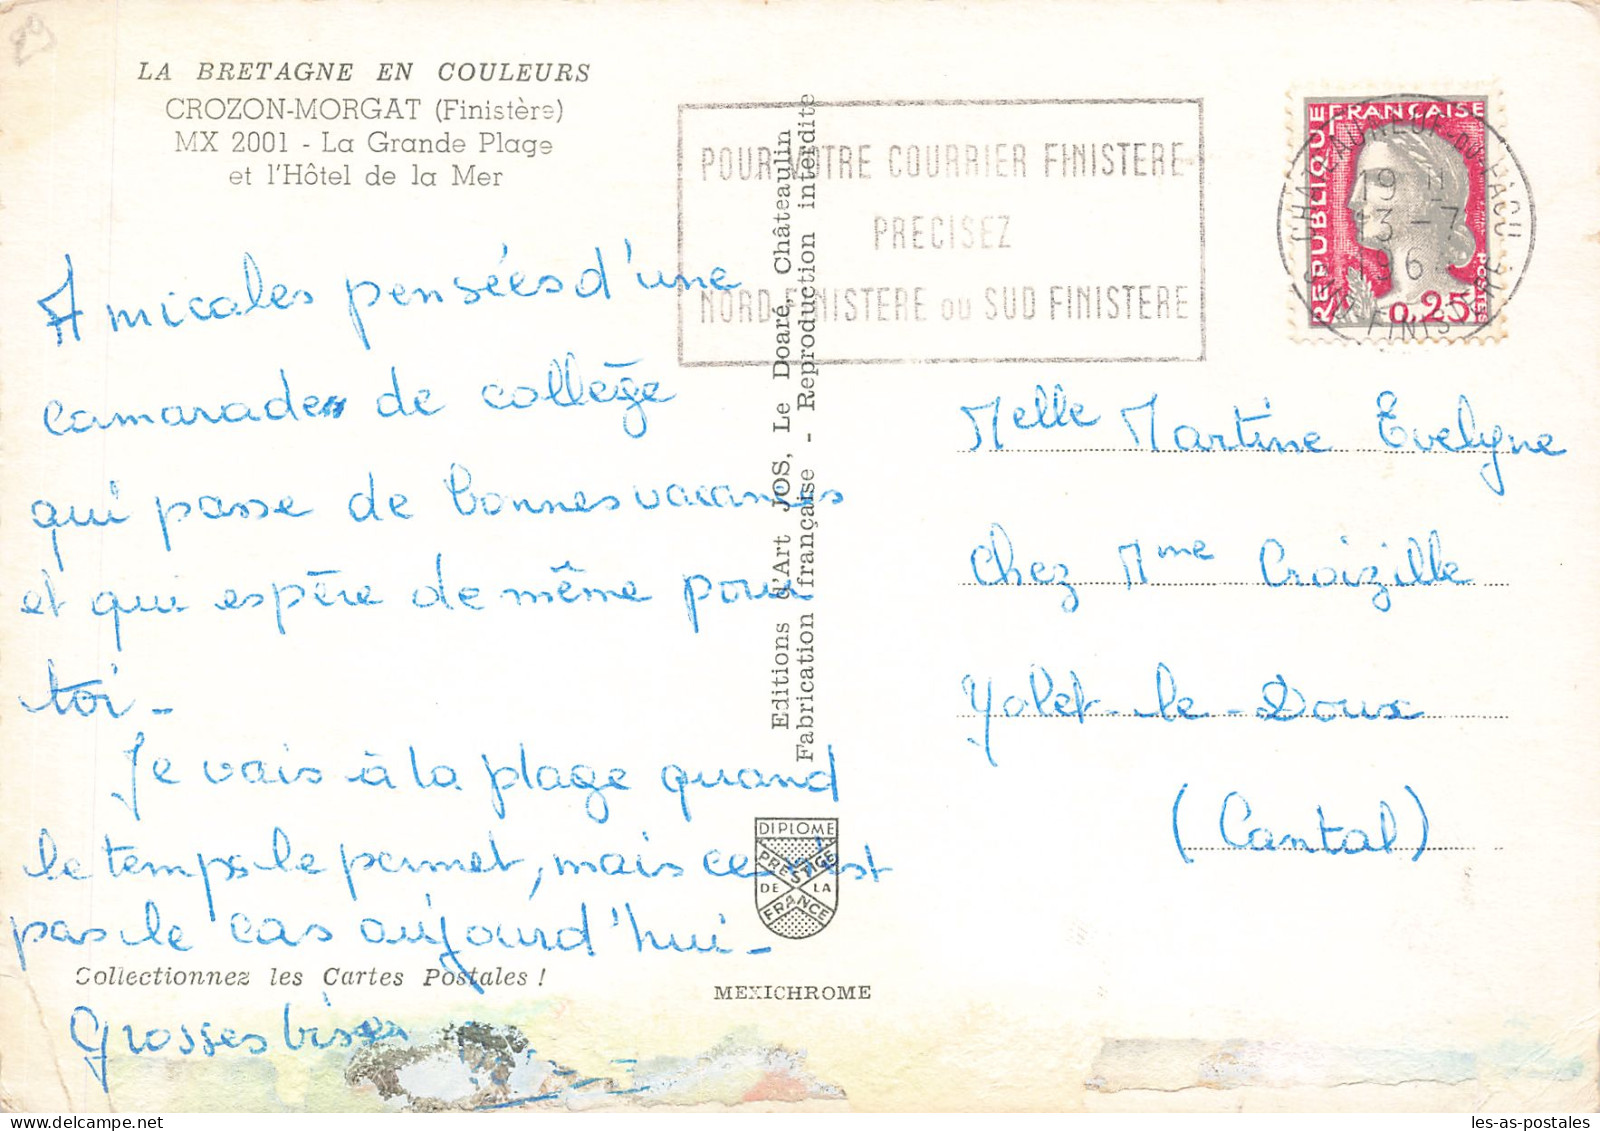 LA BRETAGNE EN COULEURS
CROZON-MORGAT (Finistère)
MX 2001 - La Grande Plage
et l'Hôtel de la Mer
Amicales pensées d'une
camarade de collège
qui passe de bonnes vacances
et qui espère de même pour
toi -
Je vais à la plage quand
le temps le permet, mais ce n'est
pas le cas aujourd'hui -
Collectionnez les Cartes Postales !
Grosses bises
Editions d'Art JOS, Le Doaré, Châteaulin
Fabrication française - Reproduction interdite
DIPLOME
PRESTIGE
DE LA
FRANCE
MEXICHROME
POUR VOTRE COURRIER FINISTERE
PRECISEZ
NORD FINISTERE OU SUD FINISTERE
REPUBLIQUE FRANÇAISE
POSTES
0,25
CHATEAUNEUF-DU-FAOU
19 H
13 - 7
196
FINIS
Melle Martine Evelyne
Chez Mme Croizille
Yolet-le-Doux
(Cantal)
les-as-postales